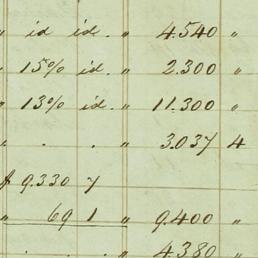 " id id. " 4.540 "
" 15% id. " 2.300 "
" 13% id. " 11.300 "
" . . " 3.037 4
$ 9.330 7
" 69 1 " 9.400 "
. . . " 4.380 "